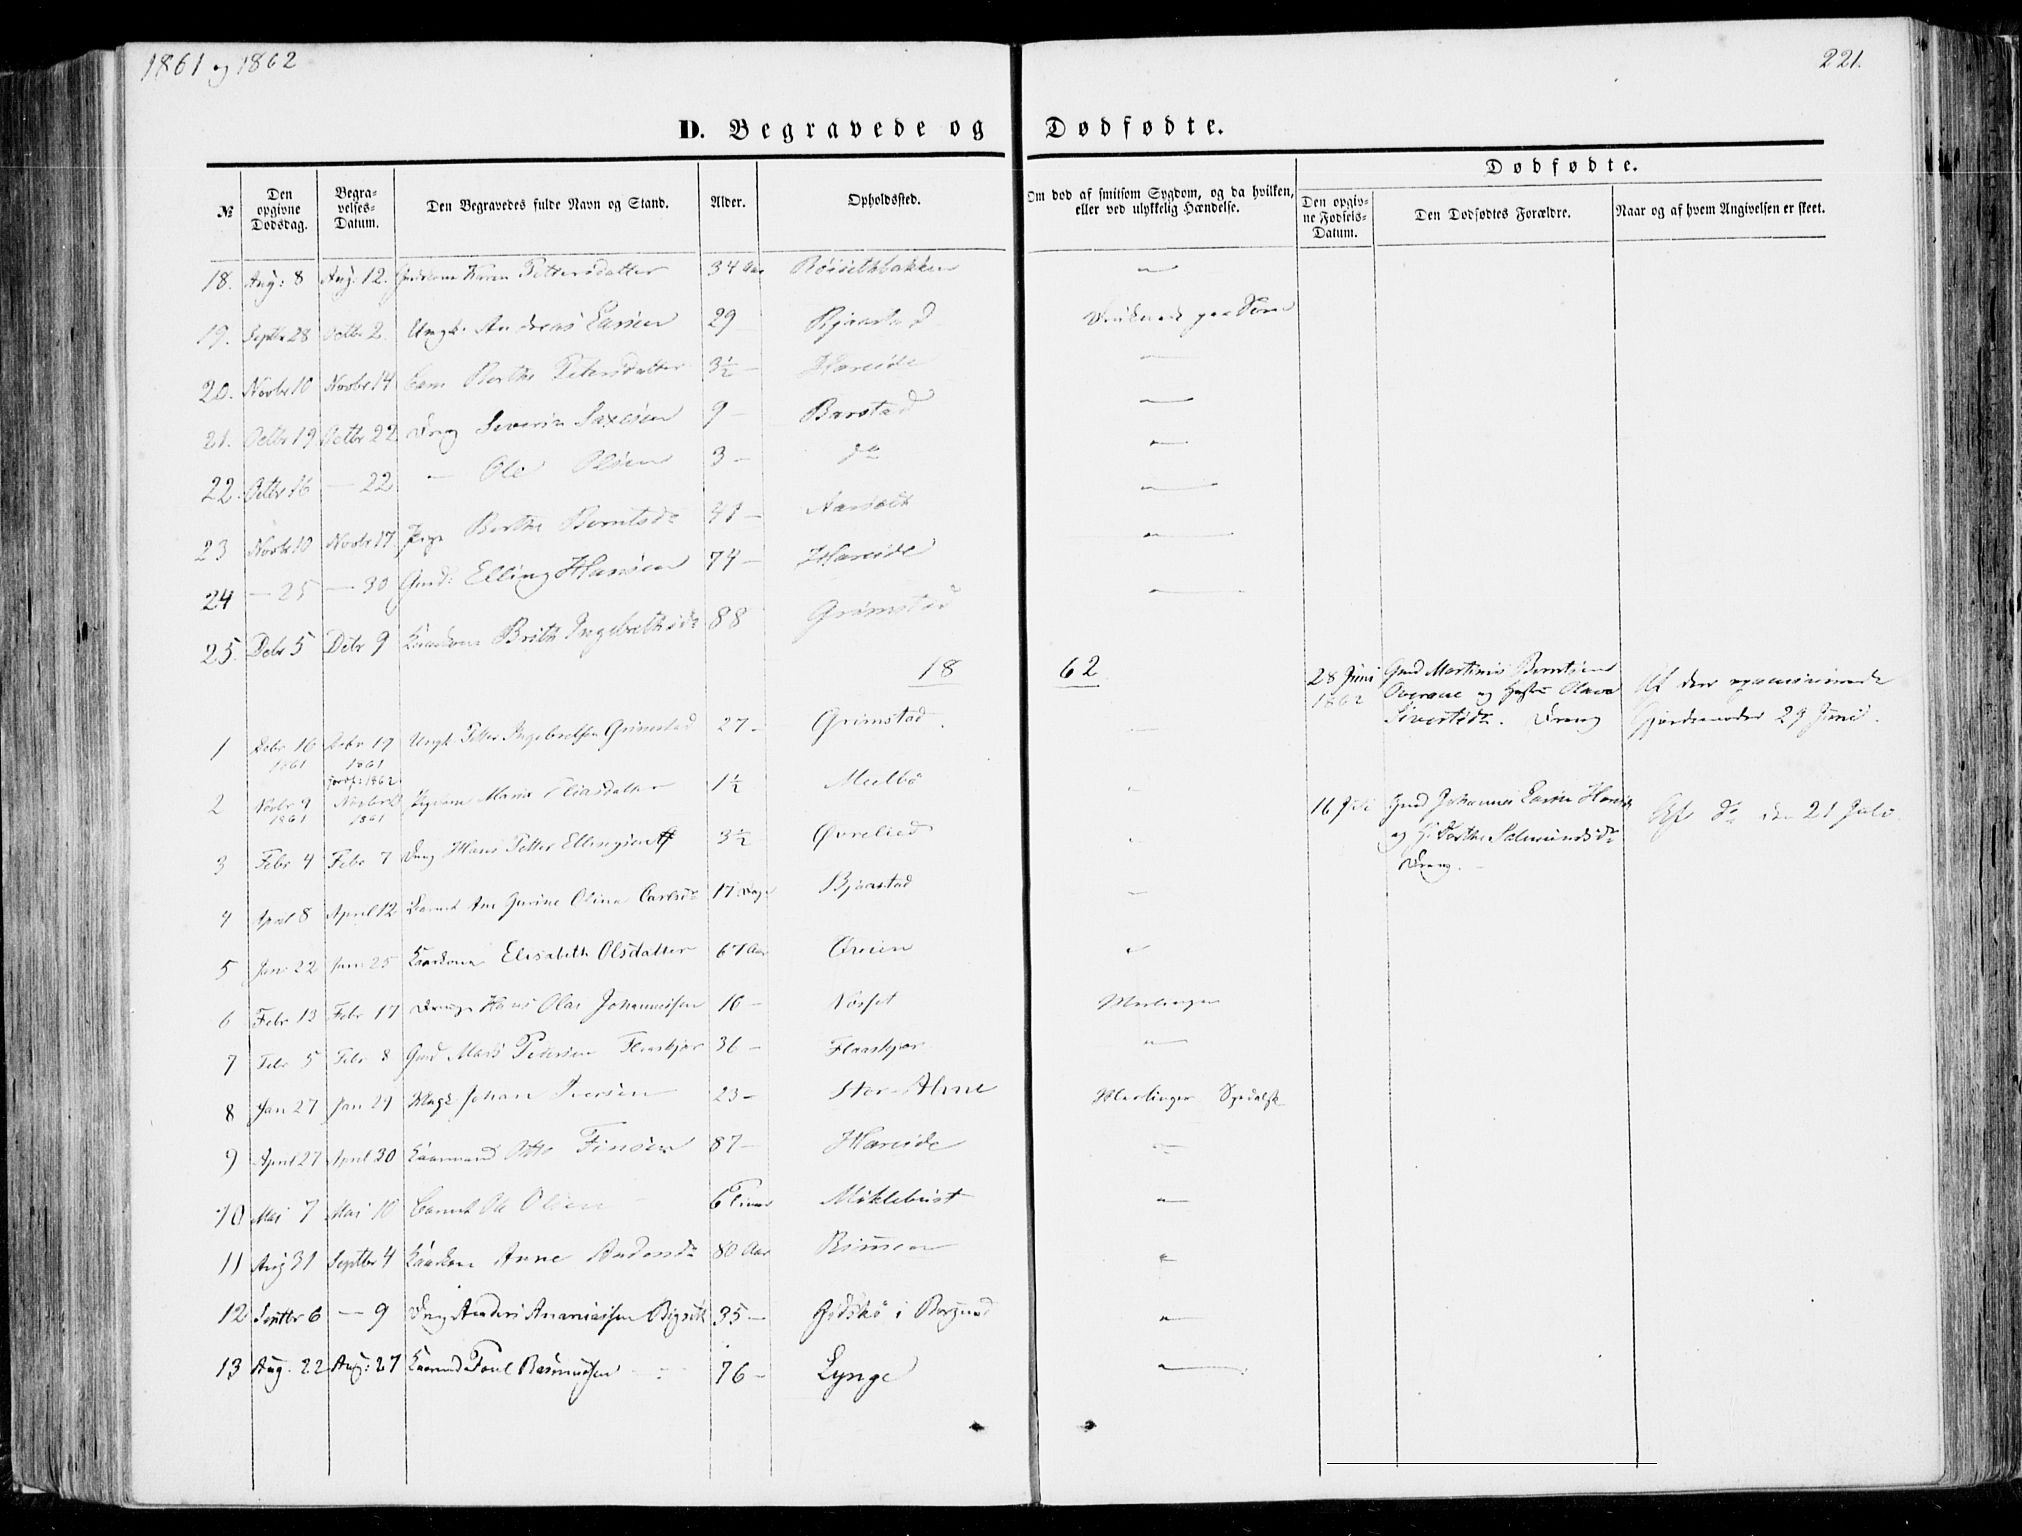 1861 og 1862
221.
D. Begravede og Dødfødte.
Dødfødte.
№
Den opgivne Dødsdag.
Begravelses-Datum.
Den Begravedes fulde Navn og Stand.
Alder.
Opholdssted.
Om død af smitsom Sygdom, og da hvilken, eller ved ulykkelig Hændelse.
Den opgivne Fødsels-Datum.
Den Dødfødtes Forældre.
Naar og af hvem Angivelsen er skeet.
18. Aug: 8 Aug. 12. Karen Pettersdatter 34 Aar Röisethbakken —
19. Septbr 28 Octbr 2. Ungk: Andreas Larsen 29 Bjaastad
20. Novbr 10 Novbr 14 Berthe Petersdatter 3½ — Hareide —
21. Octbr 19 Octbr 22 Dreng Severin Saxesen 9 — Barstad —
22. Octbr 16 — 22 — Ole Olsen 3 — do —
23 Novbr 10 Novbr 17 Pige Berthe Berntsdr 41 — Aarseth —
24 — 25 — 30 Gmd: Elling Hansen 74 — Hareide —
25. Debr 5 Debr 9 Kaarkone Brith Ingebrethsdr 88 Grimstad —
18 62
1 Debr 16 1861 Debr 19 1861 Ungk Petter Ingebretsen Grimstad 27 — Grimstad.
28 Juni 1862 Gmd Martinus Berntsen Overaae og Hustru Olava Sivertsdr. Dreng
Af den Gjordemoder 29 Juni.
2 Novbr 9 1861 1861 Pigebarn Maria Eliasdatter 1½ Meelbö
3 Febr 4 Febr 7 Dreng Hans Petter Ellingsen 3½ Øvrelied
16 Juli Gmd Johannes Larsen Hareide og H. Berthe Salmundsdr Dreng. —
Af do den 21 Juli
4 April 8 April 12 Barnet Ane Gurine Olina Carlsdr 17 Dage Bjaastad —
5 Jan 22 Jan 25 Kaarkone Elisabeth Olsdatter 67 Aar Öreien
6 Febr 13 Febr 17 Dreng Hans Olai Johannessen 10 — Röset Meslinger
7 Febr 5 Febr 8 Gmd Mads Pedersen Flaaskjær 36 — Flaaskjær —
8 Jan 27 Jan 29 Ungk Johan Iversen 23 — Stor-Alme Meslinger Spedalsk
9 April 27 April 30 Kaarmand Otto Finsen 87 — Hareide —
10 Mai 7 Mai 10 Barnet Ole Olsen 6 Timer Myklebust —
11 Aug 31 Septbr 4 Kaarkone Anne Andersdr 80 Aar Rimsen
12 Septbr 6 — 9 Dreng Anders Ananiassen Bigset 35 — Gidskö i Borgund —
13 Aug. 22 Aug: 27 Kaarmd Poul Rasmussen 76 — Lynge —